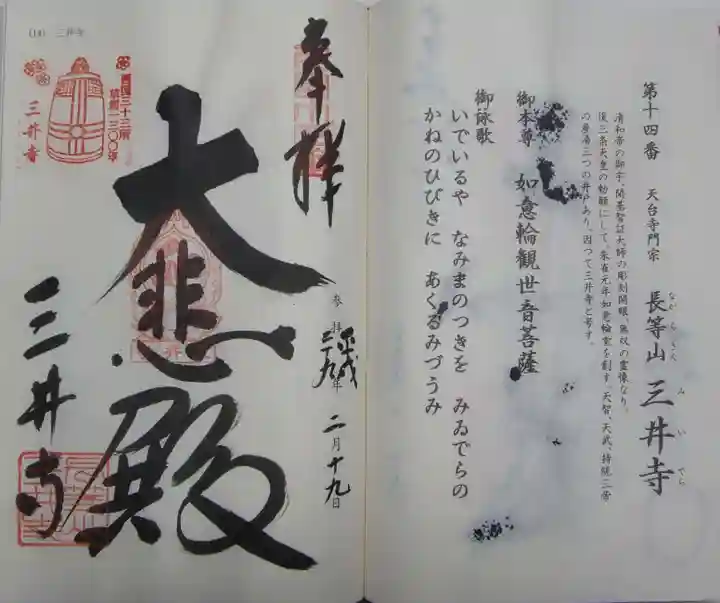 第十四番　天台寺門宗　長等山　三井寺
ながらさん　みいでら
清和帝の御宇、開基智証大師の彫刻開眼、無双の霊像なり。
後三条天皇の勅願にして、
天智、天武、持統三帝
の産湯三つの井戸あり、因つて三井寺と号す。
御本尊　如意輪観世音菩薩
御詠歌
いでいるや　なみまのつきを　みゐでらの
かねのひびきに　あくるみづうみ
(14)　三井寺
奉拝
西国三十三所
草創一三〇〇年
三井寺
大悲殿
参拝　平成二十九年　二月十九日
三井寺